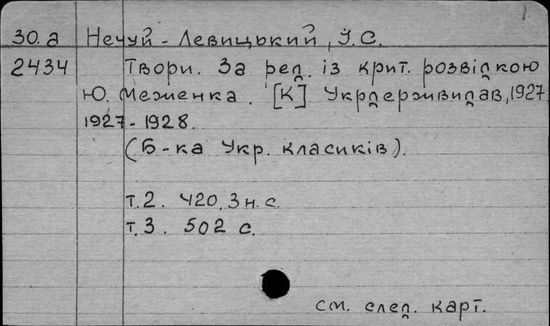 30.а Нечуй-Левицький, І.С.
2434 Твори. За ред. із крит. розвідкою
Ю. Меженка. [К] Укрдержвидав, 1927
1927-1928.
(Б-ка Укр. класиків).
т.2. 420, 3 н. с.
т.3. 502 с.
см. след. карт.